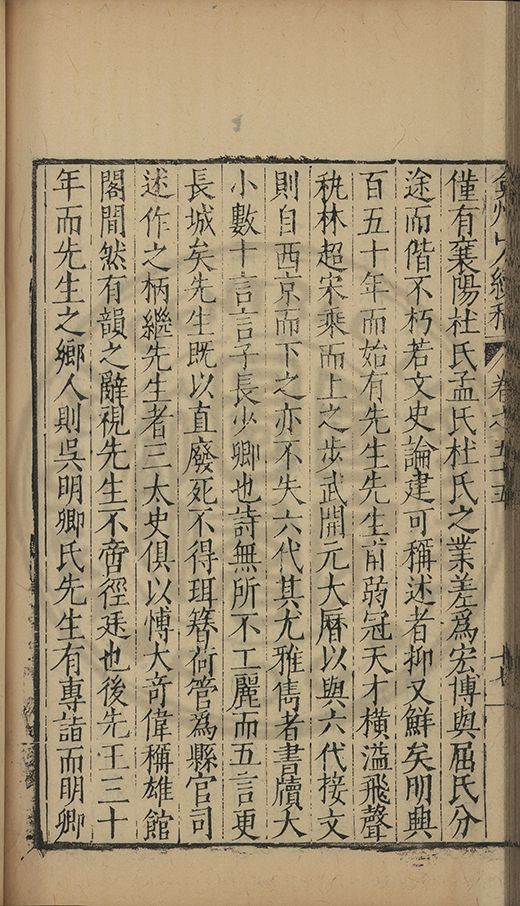 弇州山人續稿 卷之五十五 十七
僅有襄陽杜氏孟氏杜氏之業差爲宏博與屈氏分
途而偕不朽若文史論建可稱述者抑又鮮矣明興
百五十年而始有先生先生甫弱冠天才橫溢飛聲
秇林超宋乘而上之步武開元大曆以與六代接文
則自西京而下之亦不失六代其尤雅雋者書牘大
小數十言言子長少卿也詩無所不工麗而五言更
長城矣先生既以直廢死不得珥簪荷管爲縣官司
述作之柄繼先生者三太史俱以博大奇偉稱雄館
閣間然有韻之辭視先生不啻徑廷也後先王三十
年而先生之鄉人則吳明卿氏先生有專詣而明卿